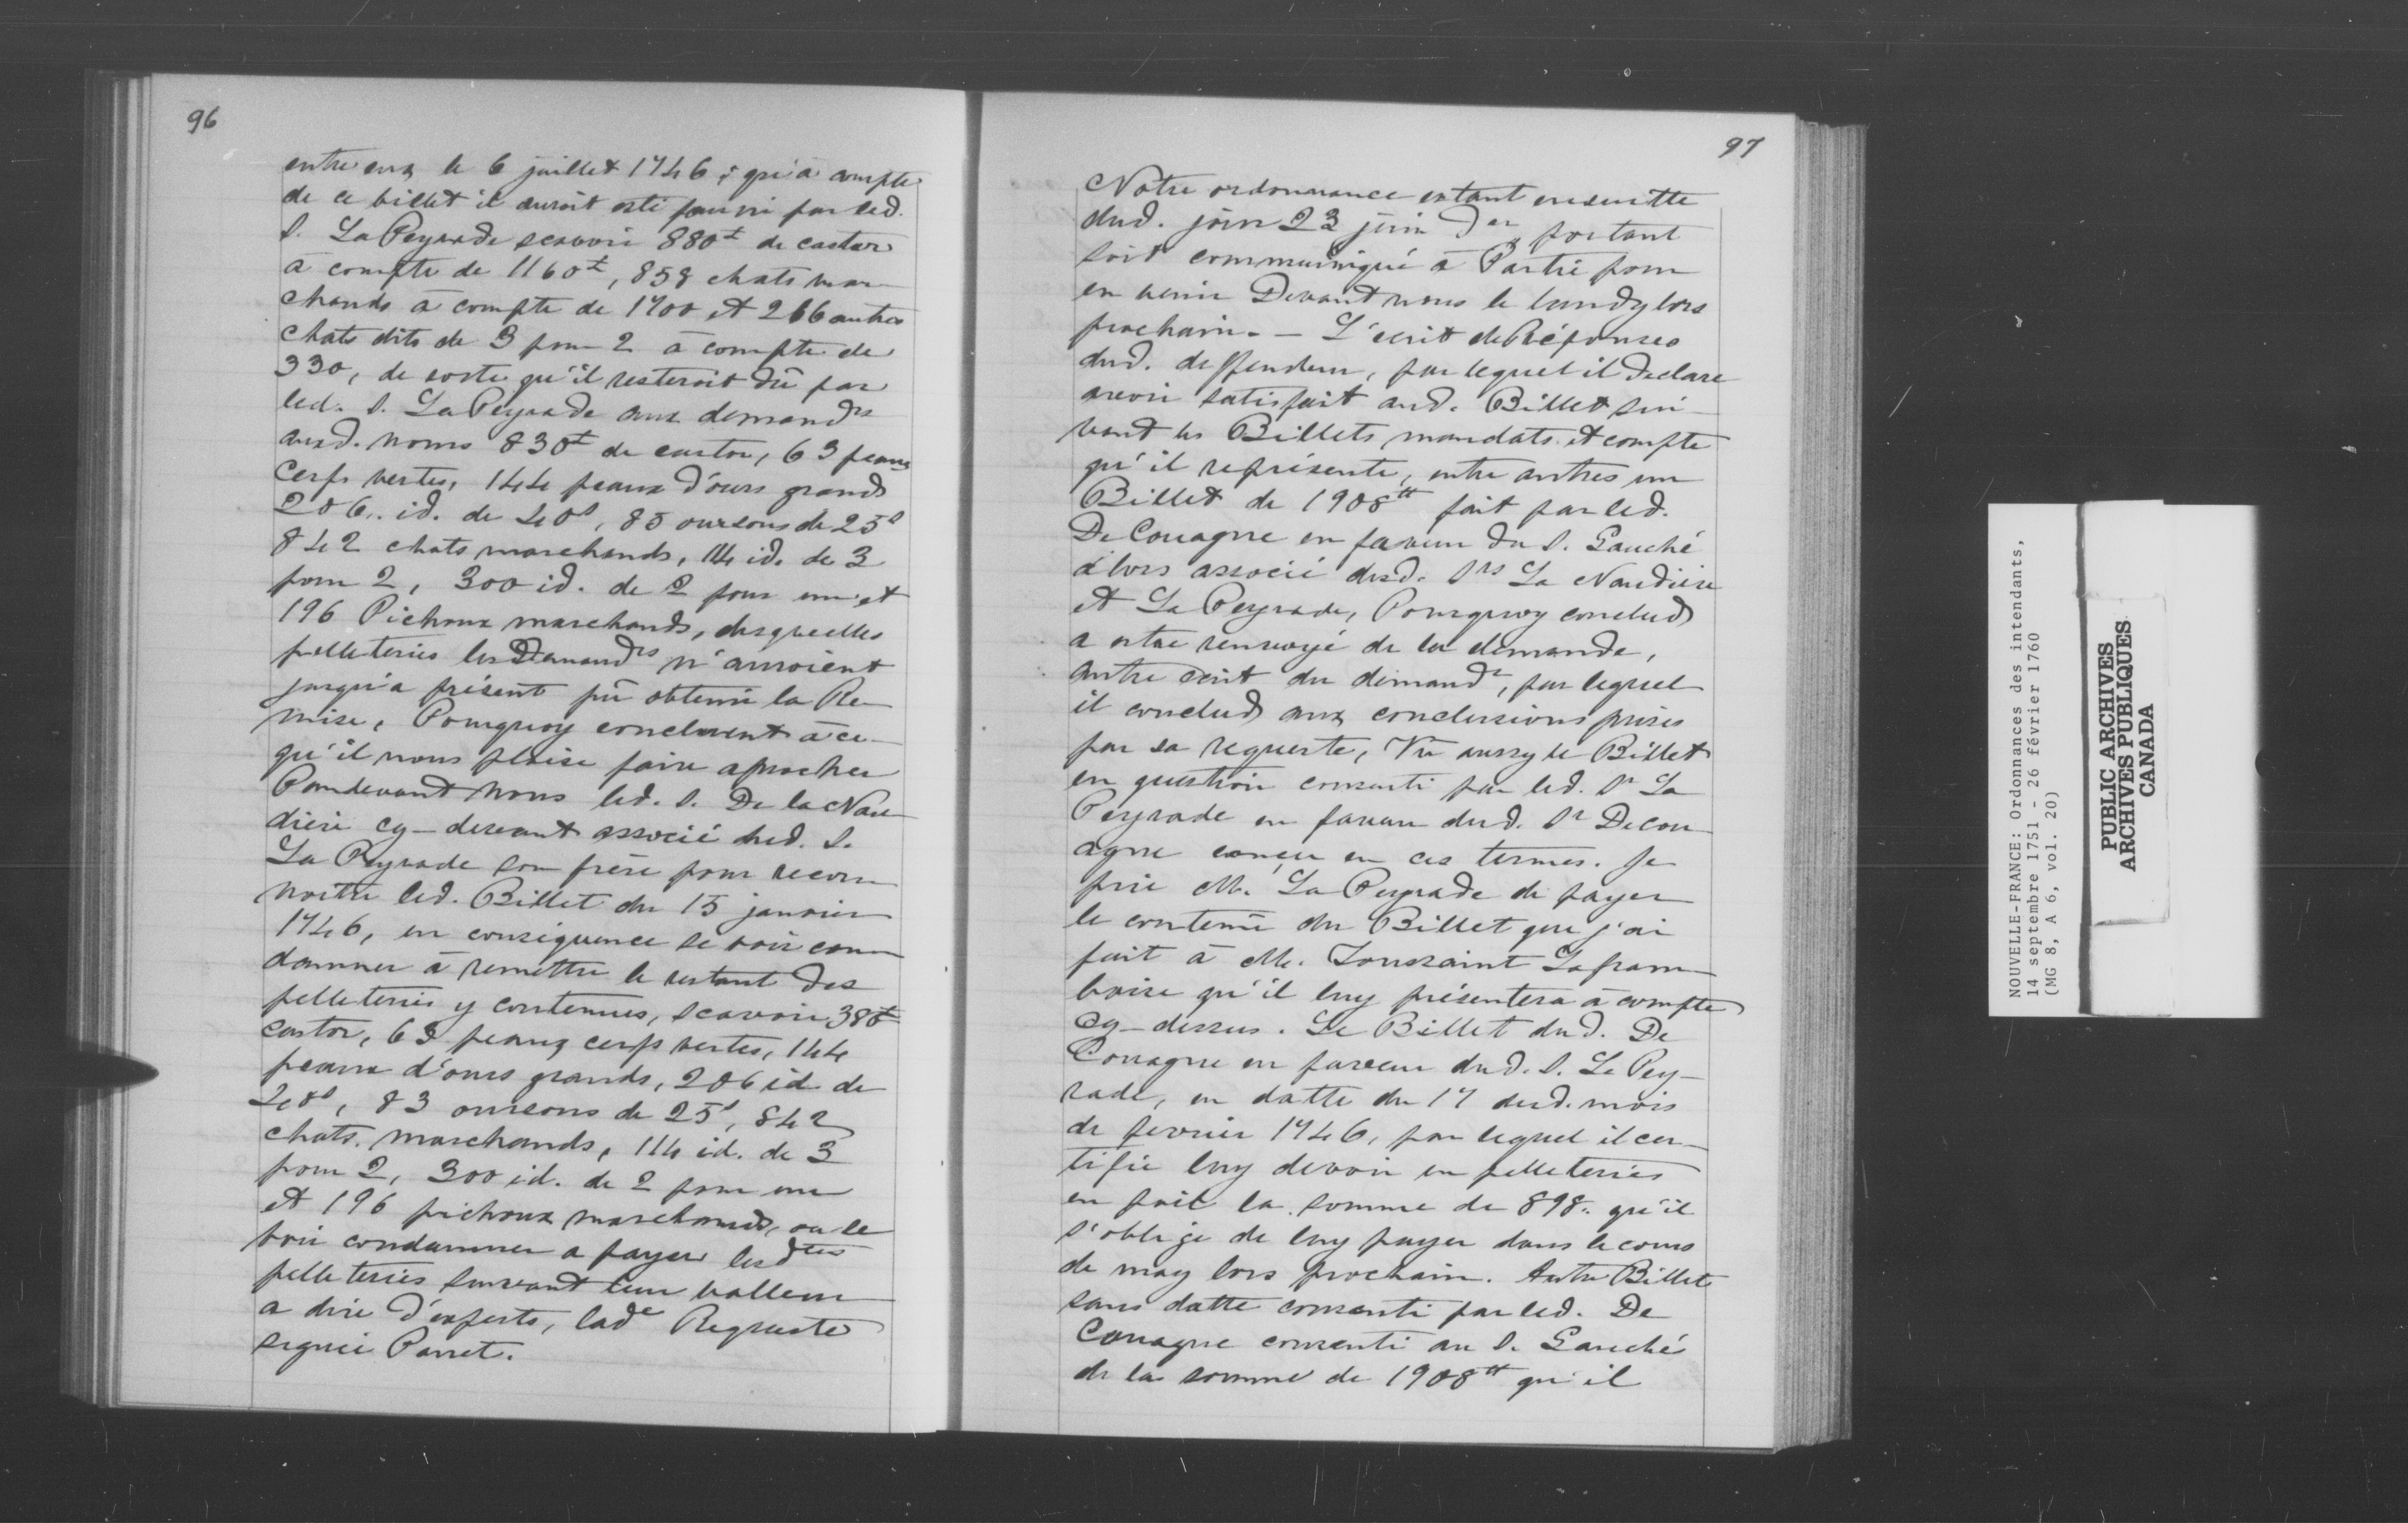 96
entre eux le 6 juillet 1746, qu'à compte
de ce billet il auroit esté fourni par led.
S. La Peyrade scavoir 880± de castor
à compte de 1160±, 858 chats mar-
chands à compte de 1700 et 266 autres
chats dits de 3 pour 2 à compte de
330, de sorte qu'il resteroit dû par
led. S. La Peyrade aux demandrs
aud. noms 830± de castor, 63 peaux
cerfs vertes, 144 peaux d'ours grands
206 id. de 40s, 85 oursons de 25s
842 chats marchands, 114 id. de 3
pour 2, 300 id. de 2 pour un et
196 Pichoux marchands, desquelles
pelleteries les Demandrs n'auroient
jusqu'à présent pû obtenir la Re-
mise, Pourquoy concluent à ce
qu'il nous plaise faire aprocher
Pardevant Nous led. S. De la Nau-
dière cy-devant associé dud. S.
La Peyrade son frère pour recon-
noitre led. Billet du 15 janvier
1746, en conséquence se voir con-
damner à remettre le restant des
pelleteries y contenues, scavoir 380±
castor, 63 peaux cerfs vertes, 144
peaux d'ours grands, 206 id de
40s, 83 oursons de 25s, 842
chats marchands, 114 id. de 3
pour 2, 300 id. de 2 pour un
et 196 pichoux marchands, ou se
voir condamner a payer lesdtes
pelleteries suivant leur valleur
a dire d'experts, lade Requeste
signée Panet.
97
Notre ordonnance estant ensuitte
dud. jour 23 juin Der portant
soit communiqué à Partie pour
en venir Devant nous le lundy lors
prochain. — L'écrit de Réponses
dud. deffendeur, par lequel il declare
avoir satisfait aud. Billet sui-
vant les Billets, mandats et compte
qu'il représente, entre autres un
Billet de 1908tt fait par led.
De Couagne en faveur du S. Gauché
alors associé desd. Srs La Naudière
et La Peyrade, Pourquoy conclud
a estre renvoyé de la demande,
autre écrit du demandr, par lequel
il conclud aux conclusions prises
par sa requeste, Vu aussy le Billet
en question consenti par led. Sr La
Peyrade en faveur dud. Sr Decou-
agne conçu en ces termes. Je
prie M. La Peyrade de payer
le contenu du Billet que j'ai
fait à M. Toussaint Lafram-
boise qu'il luy présentera à compte
cy-dessus. Le Billet dud. De
Couagne en faveur dud. S. La Pey-
rade, en datte du 17 dud. mois
de fevrier 1746, par lequel il cer-
tifie luy devoir en pelleteries
en poil la somme de 898.. qu'il
s'oblige de luy payer dans le cours
de may lors prochain. Autre Billet
sans datte consenti par led. De
Couagne consenti au S. Gauché
de la somme de 1908tt qu'il
NOUVELLE-FRANCE: Ordonnances des intendants,
14 septembre 1751 - 26 février 1760
(MG 8, A 6, vol. 20)
PUBLIC ARCHIVES
ARCHIVES PUBLIQUES
CANADA